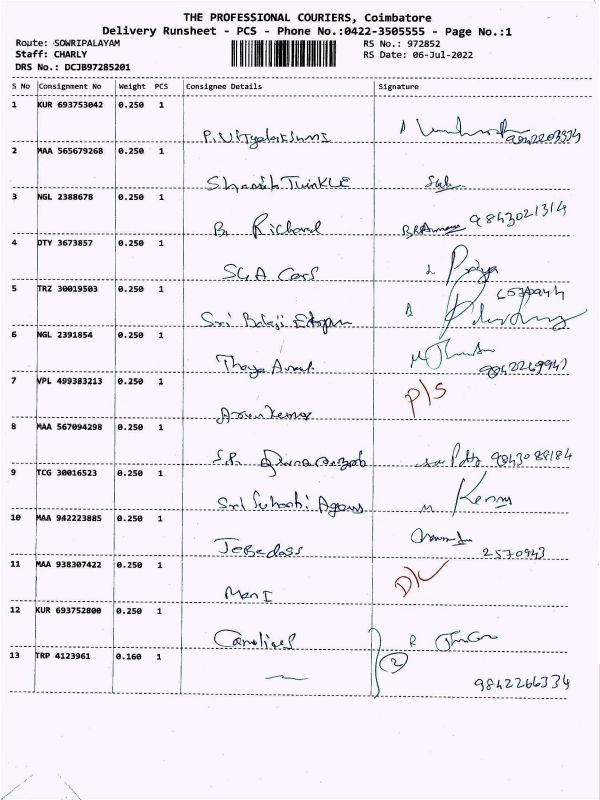 THE PROFESSIONAL COURIERS, Coimbatore
Delivery Runsheet - PCS - Phone No.:0422-3505555 - Page No.:1
Route: SOWRIPALAYAM RS No.: 972852
Staff: CHARLY RS Date: 06-Jul-2022
DRS No.: DCJB97285201
S No Consignment No Weight PCS Consignee Details Signature
1 KUR 693753042 0.250 1
2 MAA 565679268 0.250 1
TWINKLE
3 NGL 2388678 0.250 1
B. Richard 9843021314
4 DTY 3673857 0.250 1
SGA Cars Priya
5 TRZ 30019503 0.250 1
Sri Balaji
6 NGL 2391854 0.250 1
7 VPL 499383213 0.250 1
P/S
Arun Kumar
8 MAA 567094298 0.250 1
S.P. 9843088184
9 TCG 30016523 0.250 1
Sri
10 MAA 942223885 0.250 1
Jebadoss 2570943
11 MAA 938307422 0.250 1
D/L
Mani
12 KUR 693752800 0.250 1
13 TRP 4123961 0.160 1
2
9842266334